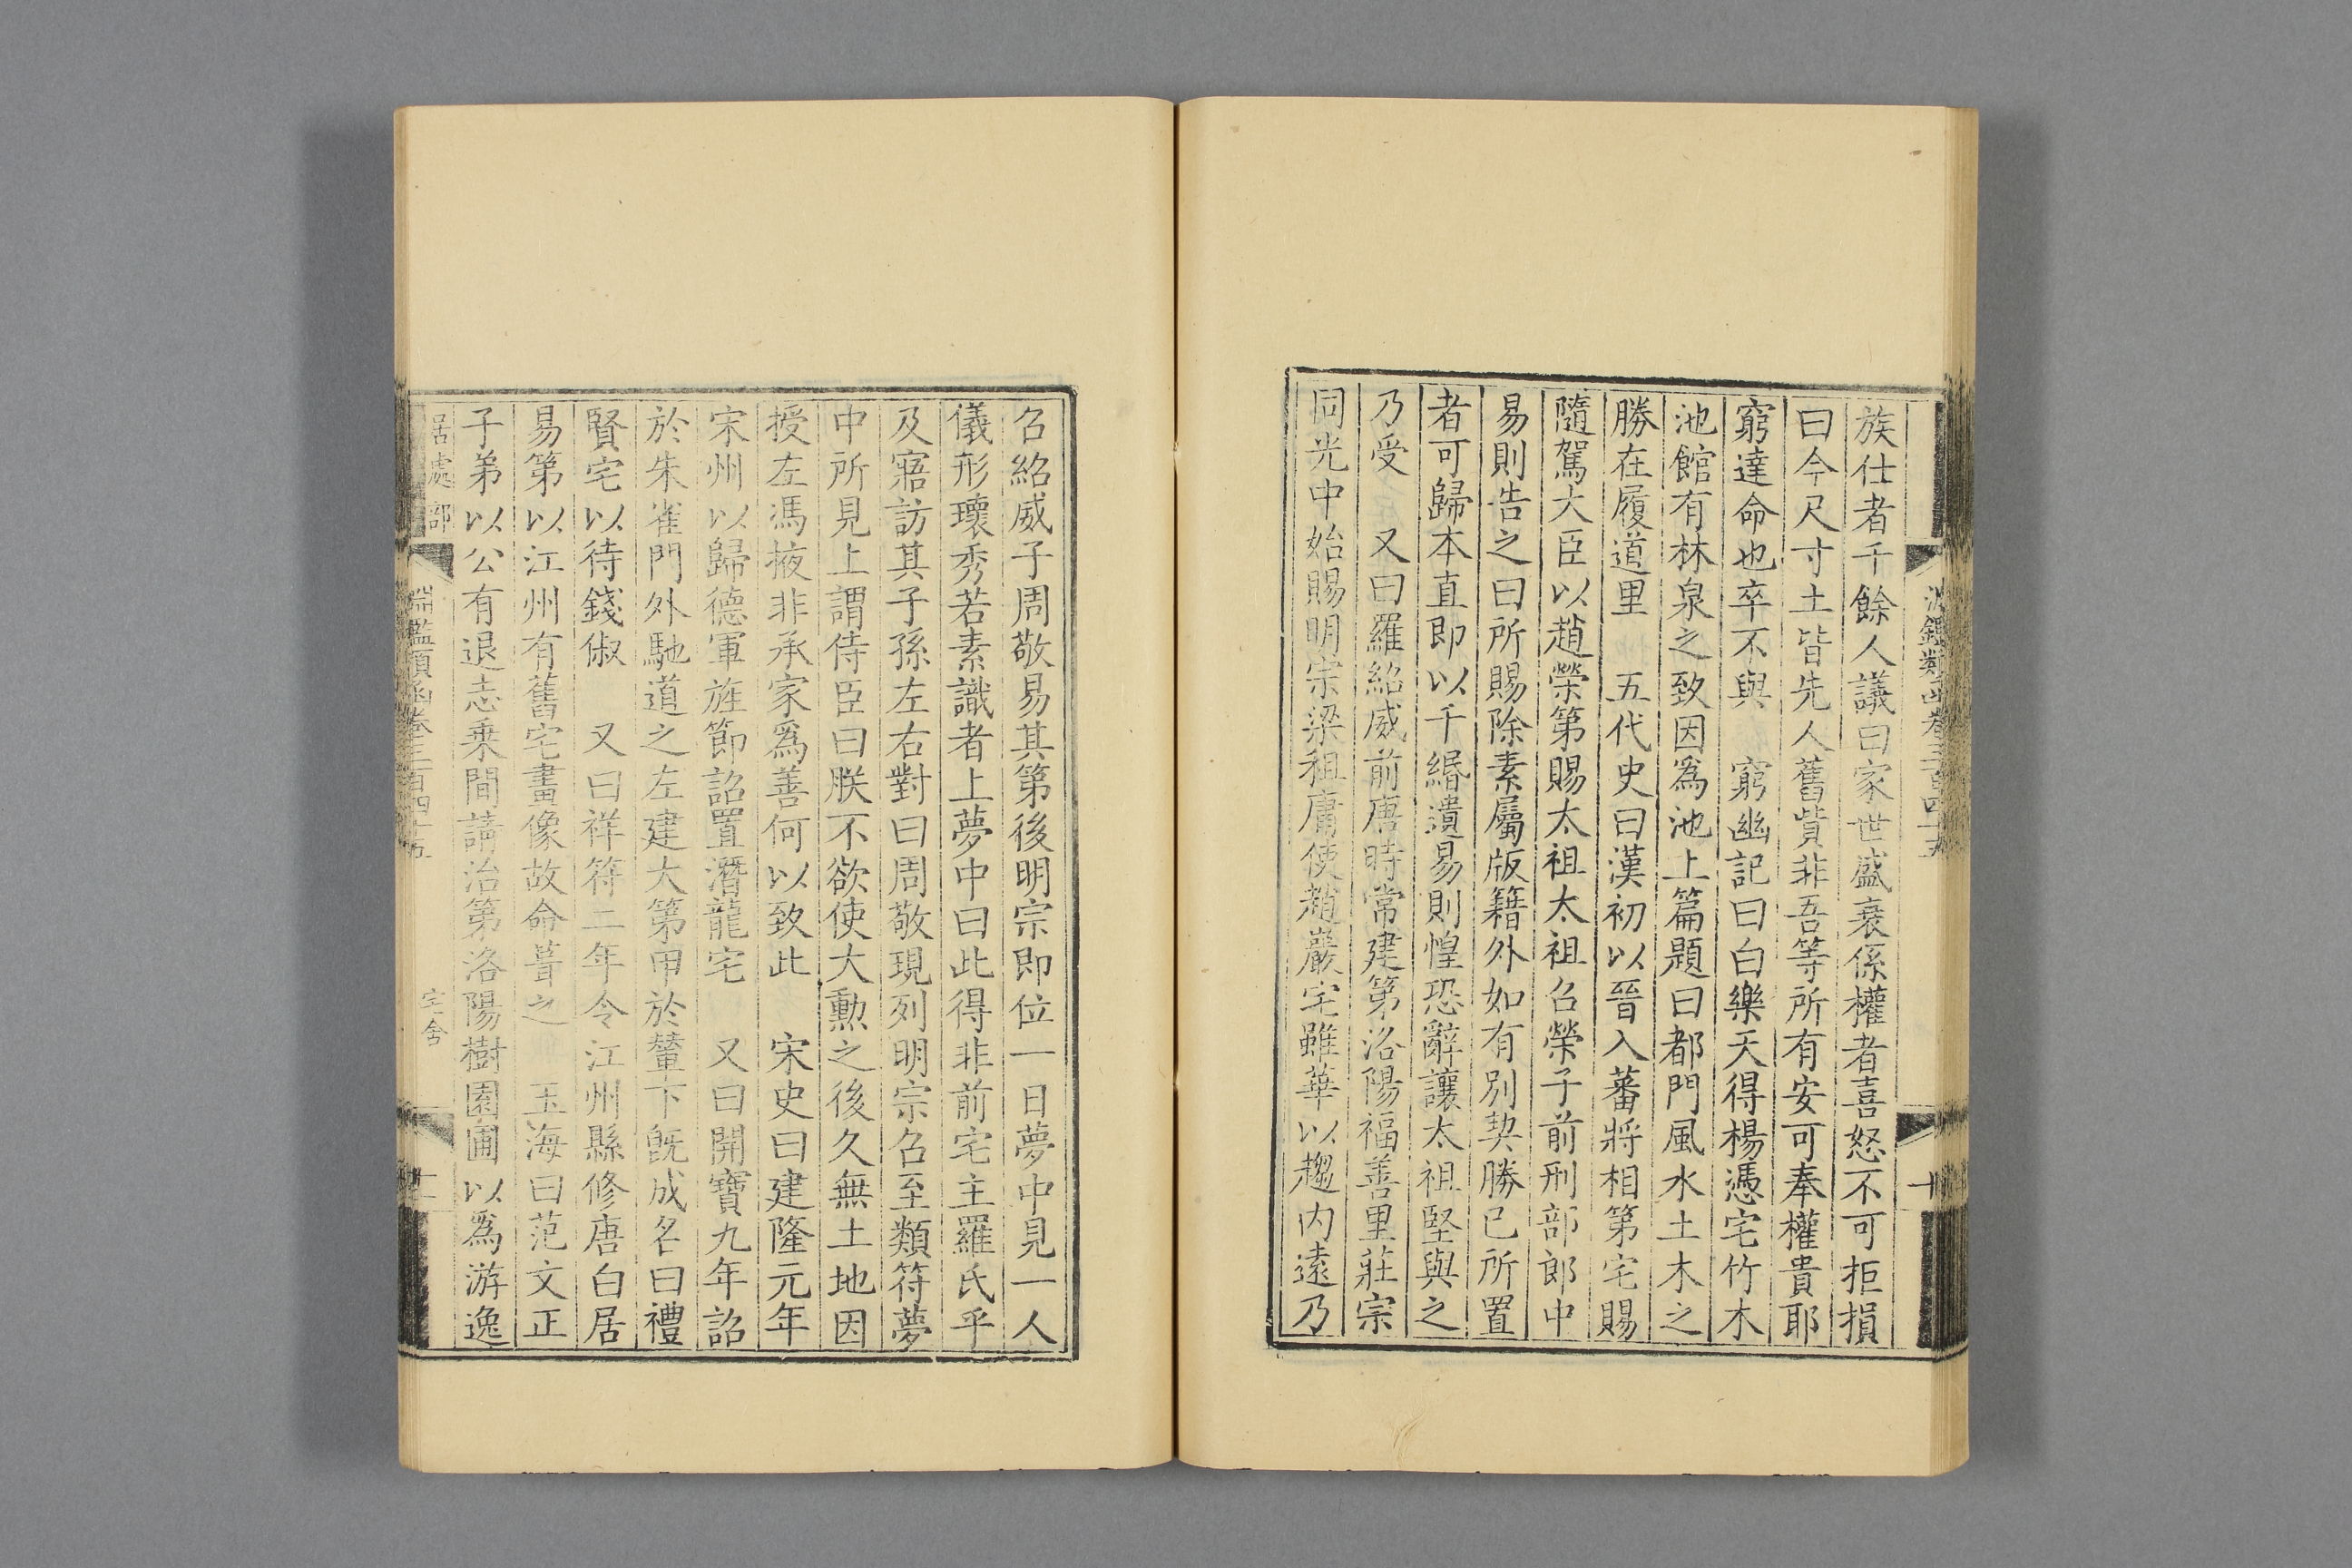 族仕者千餘人議曰家世盛衰係權者喜怒不可拒損
曰今尺寸土皆先人舊貲非吾等所有安可奉權貴耶
窮達命也卒不與 窮幽記曰白樂天得楊憑宅竹木
池館有林泉之致因爲池上篇題曰都門風水土木之
勝在履道里 五代史曰漢初以晉入蕃將相第宅賜
隨駕大臣以趙榮第賜太祖太祖召榮子前刑部郎中
易則告之曰所賜除素屬版籍外如有別契勝已所置
者可歸本直即以千緡潰易則惶恐辭讓太祖堅與之
乃受 又曰羅紹威前唐時常建第洛陽福善里莊宗
同光中始賜明宗梁租庸使趙巖宅雖華以趨内遠乃
召紹威子周敬易其第後明宗即位一日夢中見一人
儀形瓌秀若素識者上夢中曰此得非前宅主羅氏乎
及寤訪其子孫左右對曰周敬現列明宗召至類符夢
中所見上謂侍臣曰朕不欲使大勲之後久無土地因
授左馮掖非承家爲善何以致此 宋史曰建隆元年
宋州以歸德軍旌節詔置潛龍宅 又曰開寶九年詔
於朱雀門外馳道之左建大第甲於輦下旣成名曰禮
賢宅以待錢俶 又曰祥符二年令江州縣修唐白居
易第以江州有舊宅畫像故命葺之 玉海曰范文正
子弟以公有退志乘間請治第洛陽樹園圃以爲游逸
居處部 淵鑑類函卷三百四十五 宅舍 十一